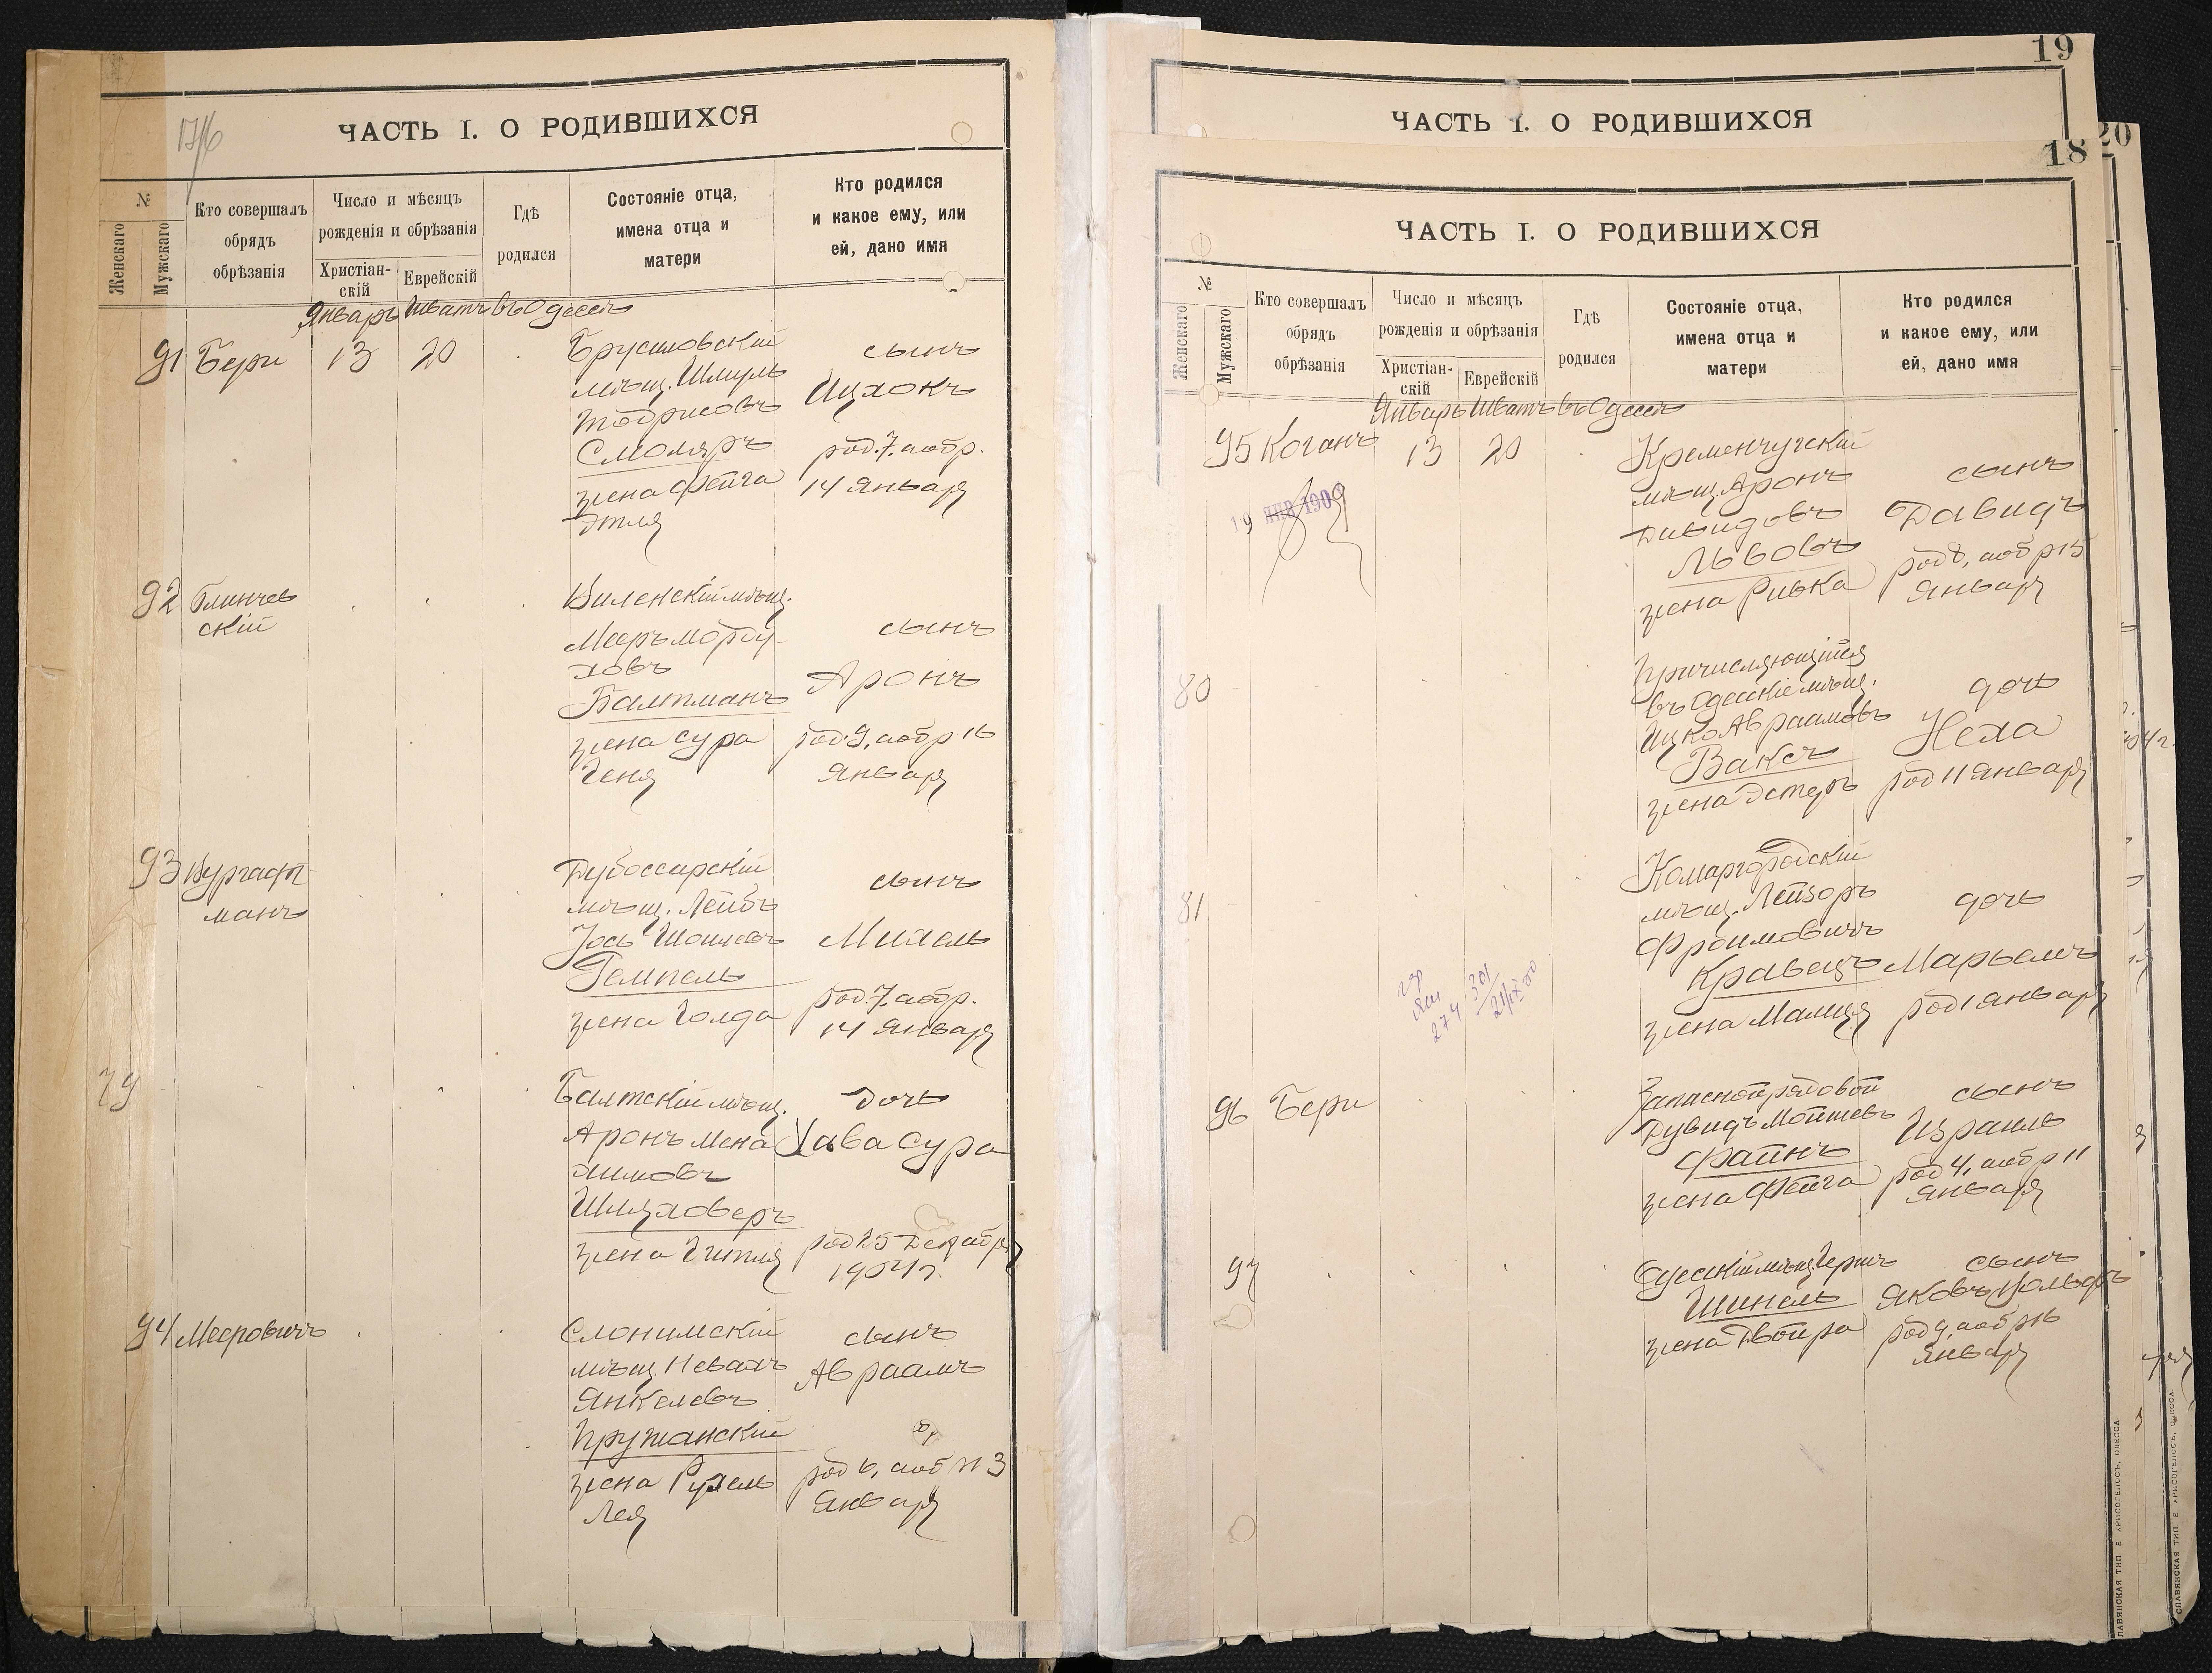 ЧАСТЬ I. О РОДИВШИХСЯ
№
Женскаго
Мужскаго
Кто совершалъ
обрядъ
обрѣзанія
Число и мѣсяцъ
рожденія и обрѣзанія
Христіан-
скій
Еврейскій
Гдѣ
родился
Состояніе отца,
имена отца и
матери
Кто родился
и какое ему, или
ей, дано имя
Январь Шватъ въ Одессѣ
91 Бери 13 20
Брусиловскій
мѣщ. Шмуль
Тодрисовъ
Смоляръ
жена Фейга
Этля
сынъ
Ицхокъ
род. 7. аобр.
14 Января
92 Блинчев
скій
Виленскій мѣщ.
Мееръ Морду-
ховъ
Балтманъ
жена Сура
Геня
сынъ
Аронъ
род. 9, аобр 16
Января
93 Вургафт
манъ
Дубоссарскій
мѣщ. Лейбъ
Іось Шоилевъ
Гемпель
жена Голда
сынъ
Михель
род. 7. аобр.
14 Января
79
Балтскій мѣщ.
Аронъ Мена
химовъ
Шмуховеръ
жена Гитля
дочь
Хава Сура
род 25 Декабря
1904 г.
94 Мееровичъ
Слонимскій
мѣщ. Невахъ
Янкелевъ
Пружанскій
жена Рухель
Лея
сынъ
Авраамъ
род 6, аобр 13
Января
19
ЧАСТЬ I. О РОДИВШИХСЯ
20
18
ЧАСТЬ I. О РОДИВШИХСЯ
№
Женскаго
Мужскаго
Кто совершалъ
обрядъ
обрѣзанія
Число и мѣсяцъ
рожденія и обрѣзанія
Христіан-
скій
Еврейскій
Гдѣ
родился
Состояніе отца,
имена отца и
матери
Кто родился
и какое ему, или
ей, дано имя
Январь Шватъ въ Одессѣ
95 Коганъ 13 20
19 ЯНВ 1909
Кременчугскій
мѣщ. Аронъ
Давидовъ
Львовъ
жена Ривка
сынъ
Давидъ
род 8, аобр 15
Января
80
Причисляющійся
въ Одесскіе мѣщ.
Ицко Авраамовъ
Ваксъ
жена Эстеръ
дочь
Неха
род 11 Января
81
Комаргородскій
мѣщ. Лейзоръ
Фроимовичъ
Кравецъ
жена Малця
дочь
Марьемъ
род 1 Января
96 Бери
Запасной рядовой
Дувидъ Мойшевъ
Файнъ
жена Фейга
сынъ
Израиль
род 4, аобр 11
Января
97
Одесскій мѣщ. Гершъ
Шинель
жена Двойра
сынъ
Яковъ Вольфъ
род 9, аобр 16
Января
СЛАВЯНСКАЯ ТИП. Е. ХРИСОГЕЛОСЪ, ОДЕССА